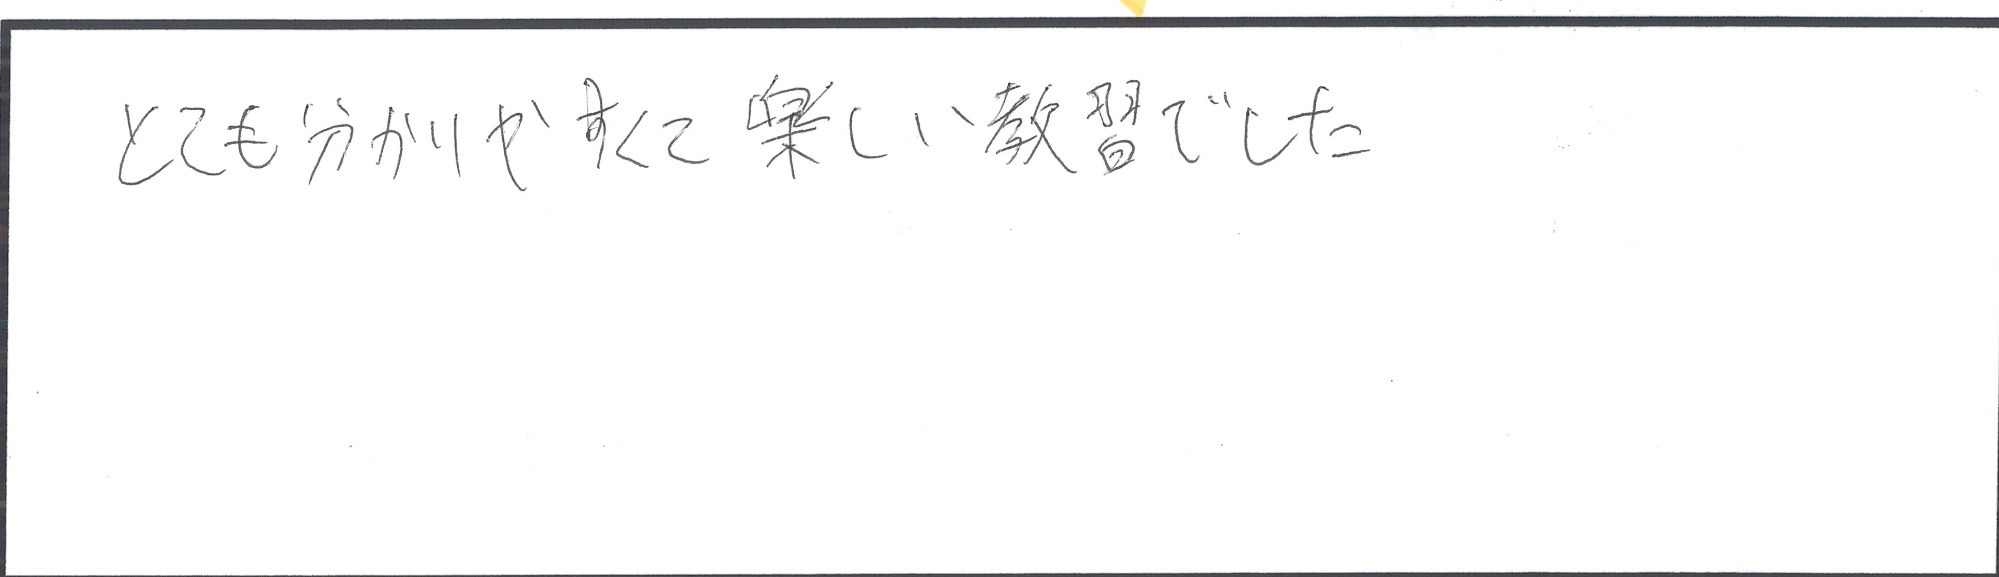 とても分かりやすくて楽しい教習でした